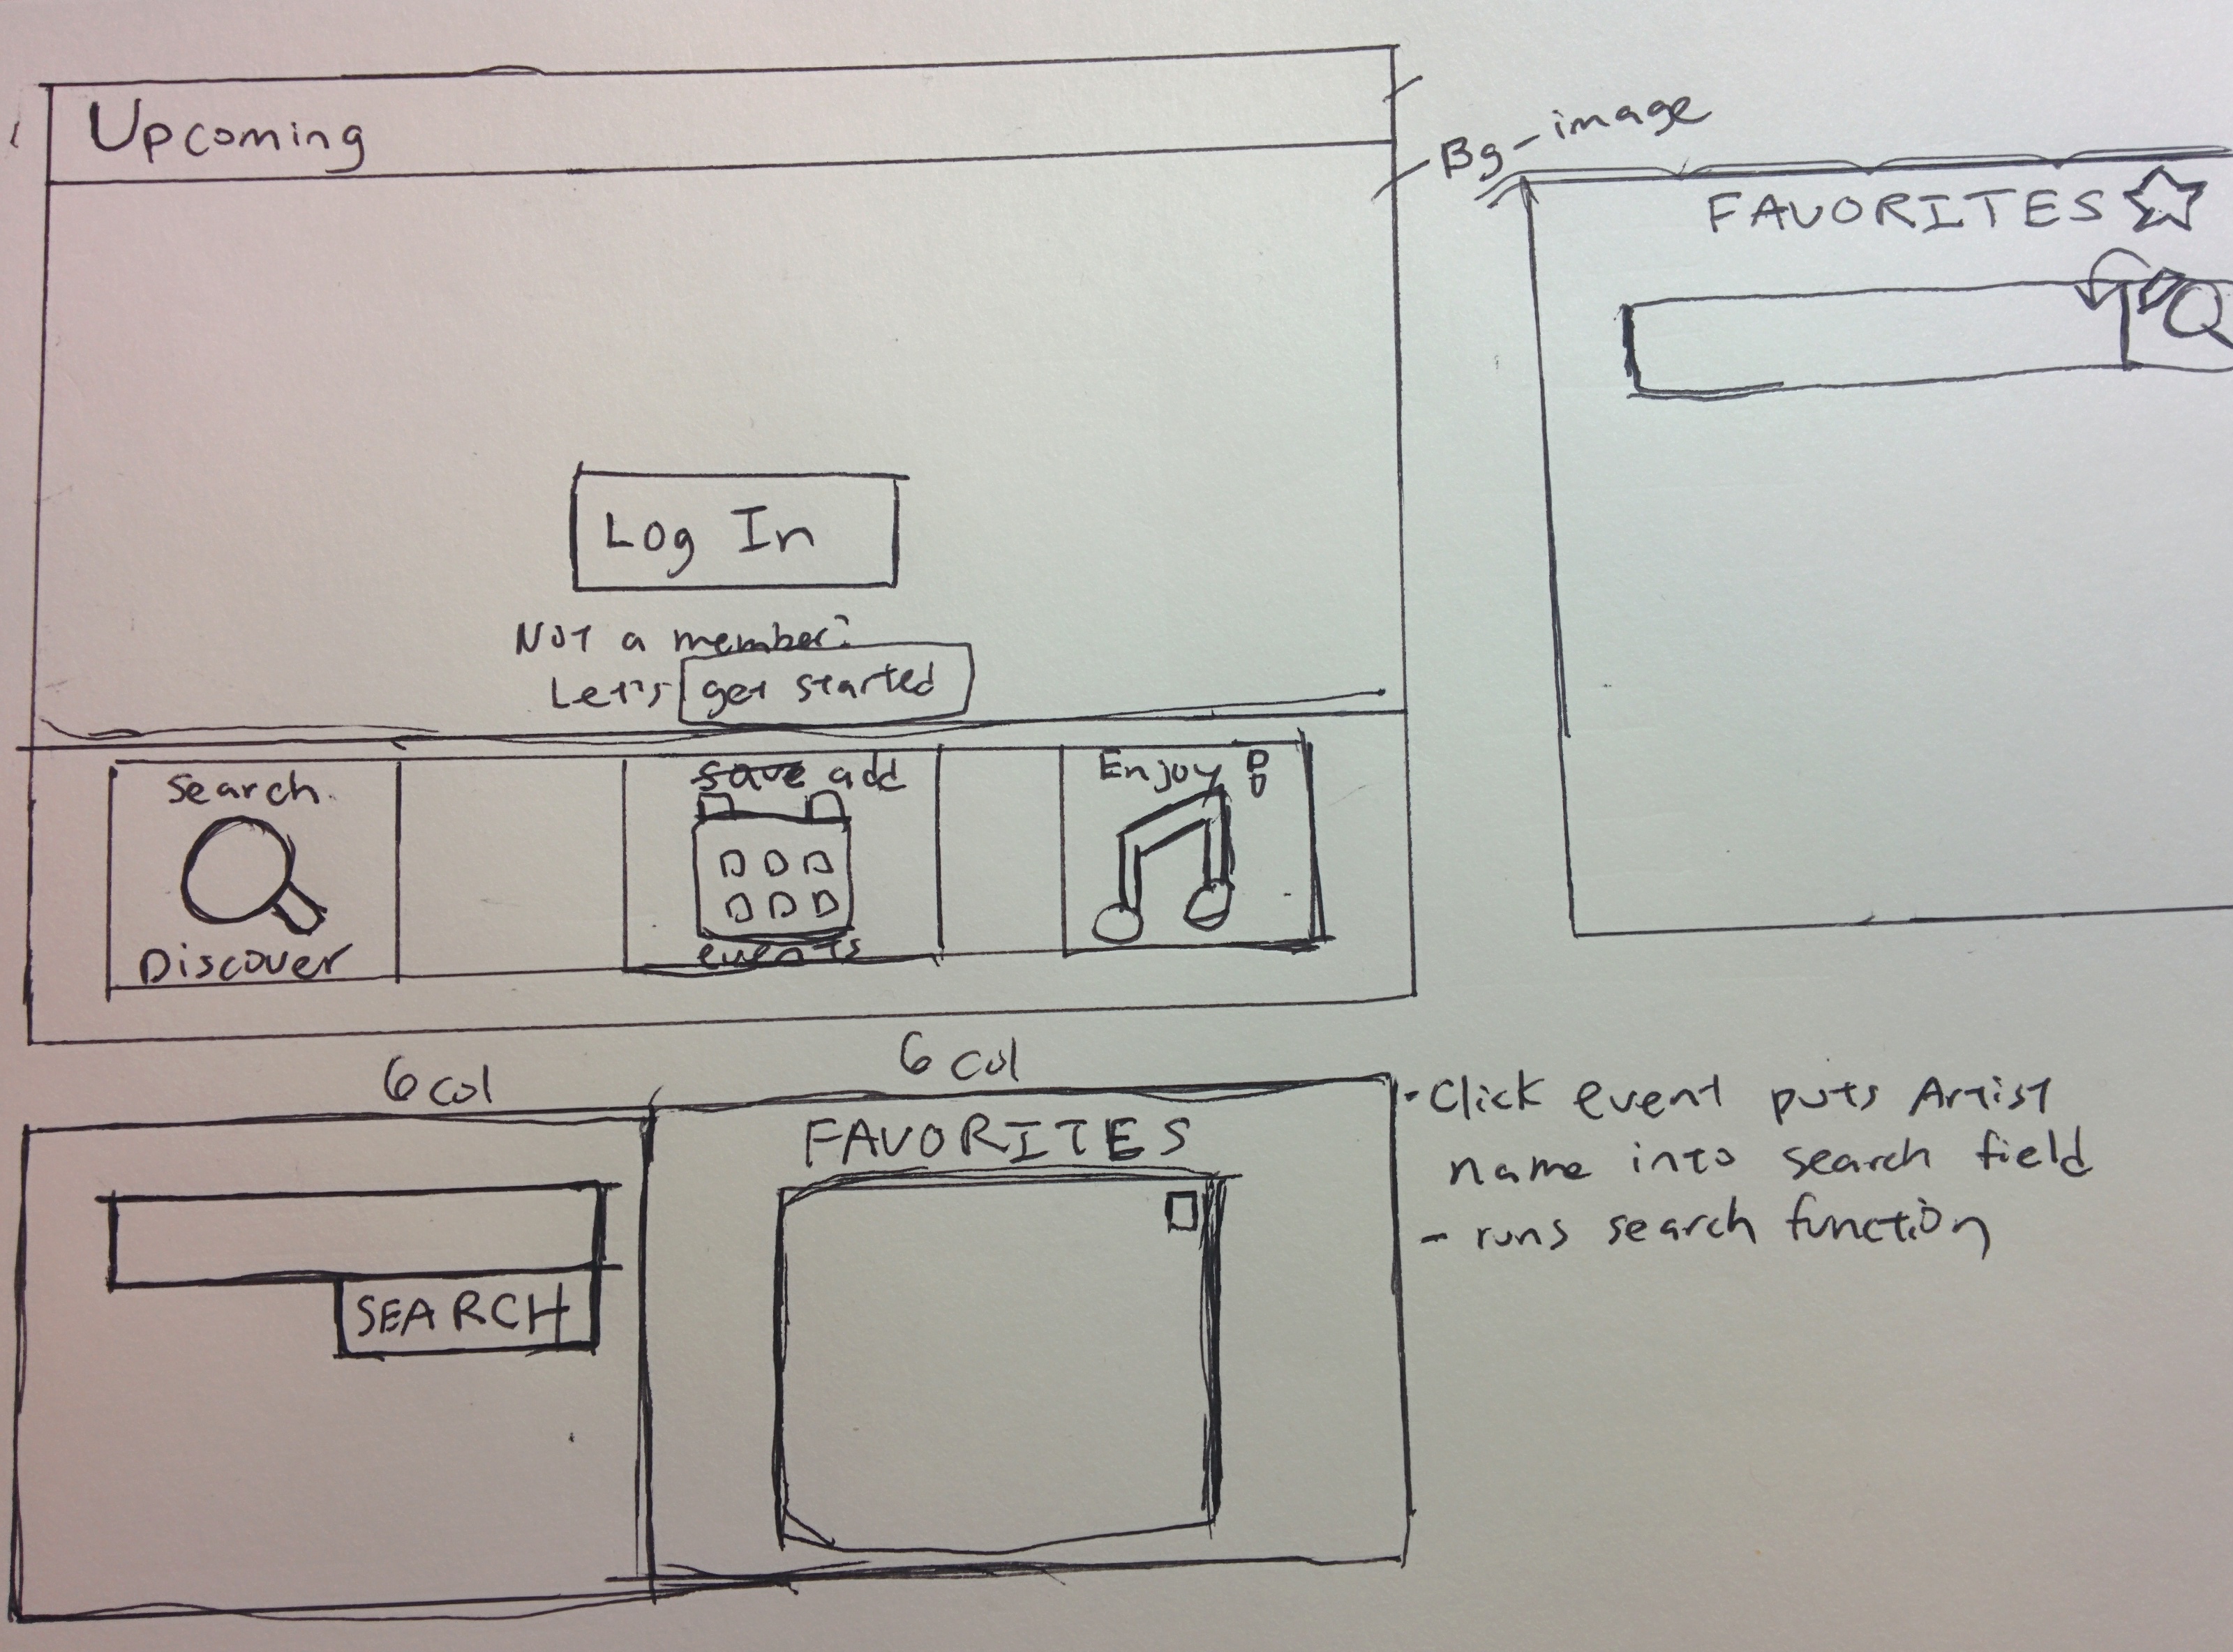 Upcoming
Bg-image
FAVORITES
Log In
Not a member?
Let's get started
Search
Discover
save add
events
Enjoy
6 col
6 col
SEARCH
FAVORITES
· Click event puts Artist
name into search field
- runs search function